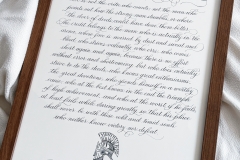 is not the critic who counts; not the man who
points out how the strong man stumbles, or where
the doer of deeds could have done them better.
The credit belongs to the man who is actually in the
arena, whose face is marred by dust and sweat and
blood; who strives valiantly; who errs, who comes
short again and again, because there is no effort
without error and shortcoming; but who does actually
strive to do the deeds; who knows great enthusiasms,
the great devotions; who spends himself in a worthy
cause; who at the best knows in the end the triumph
of high achievement, and who at the worst, if he fails,
at least fails while daring greatly, so that his place
shall never be with those cold and timid souls
who neither know victory nor defeat.